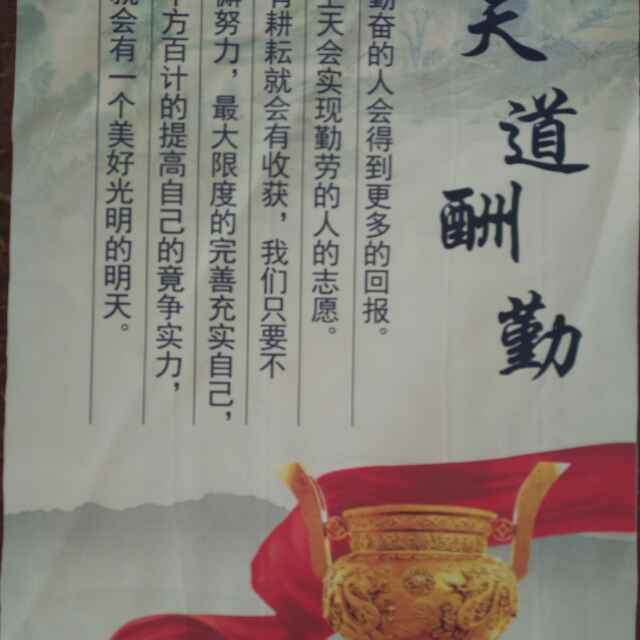 天道酬勤
勤奋的人会得到更多的回报。
上天会实现勤劳的人的志愿。
有耕耘就会有收获，我们只要不
懈努力，最大限度的完善充实自己，
千方百计的提高自己的竟争实力，
就会有一个美好光明的明天。